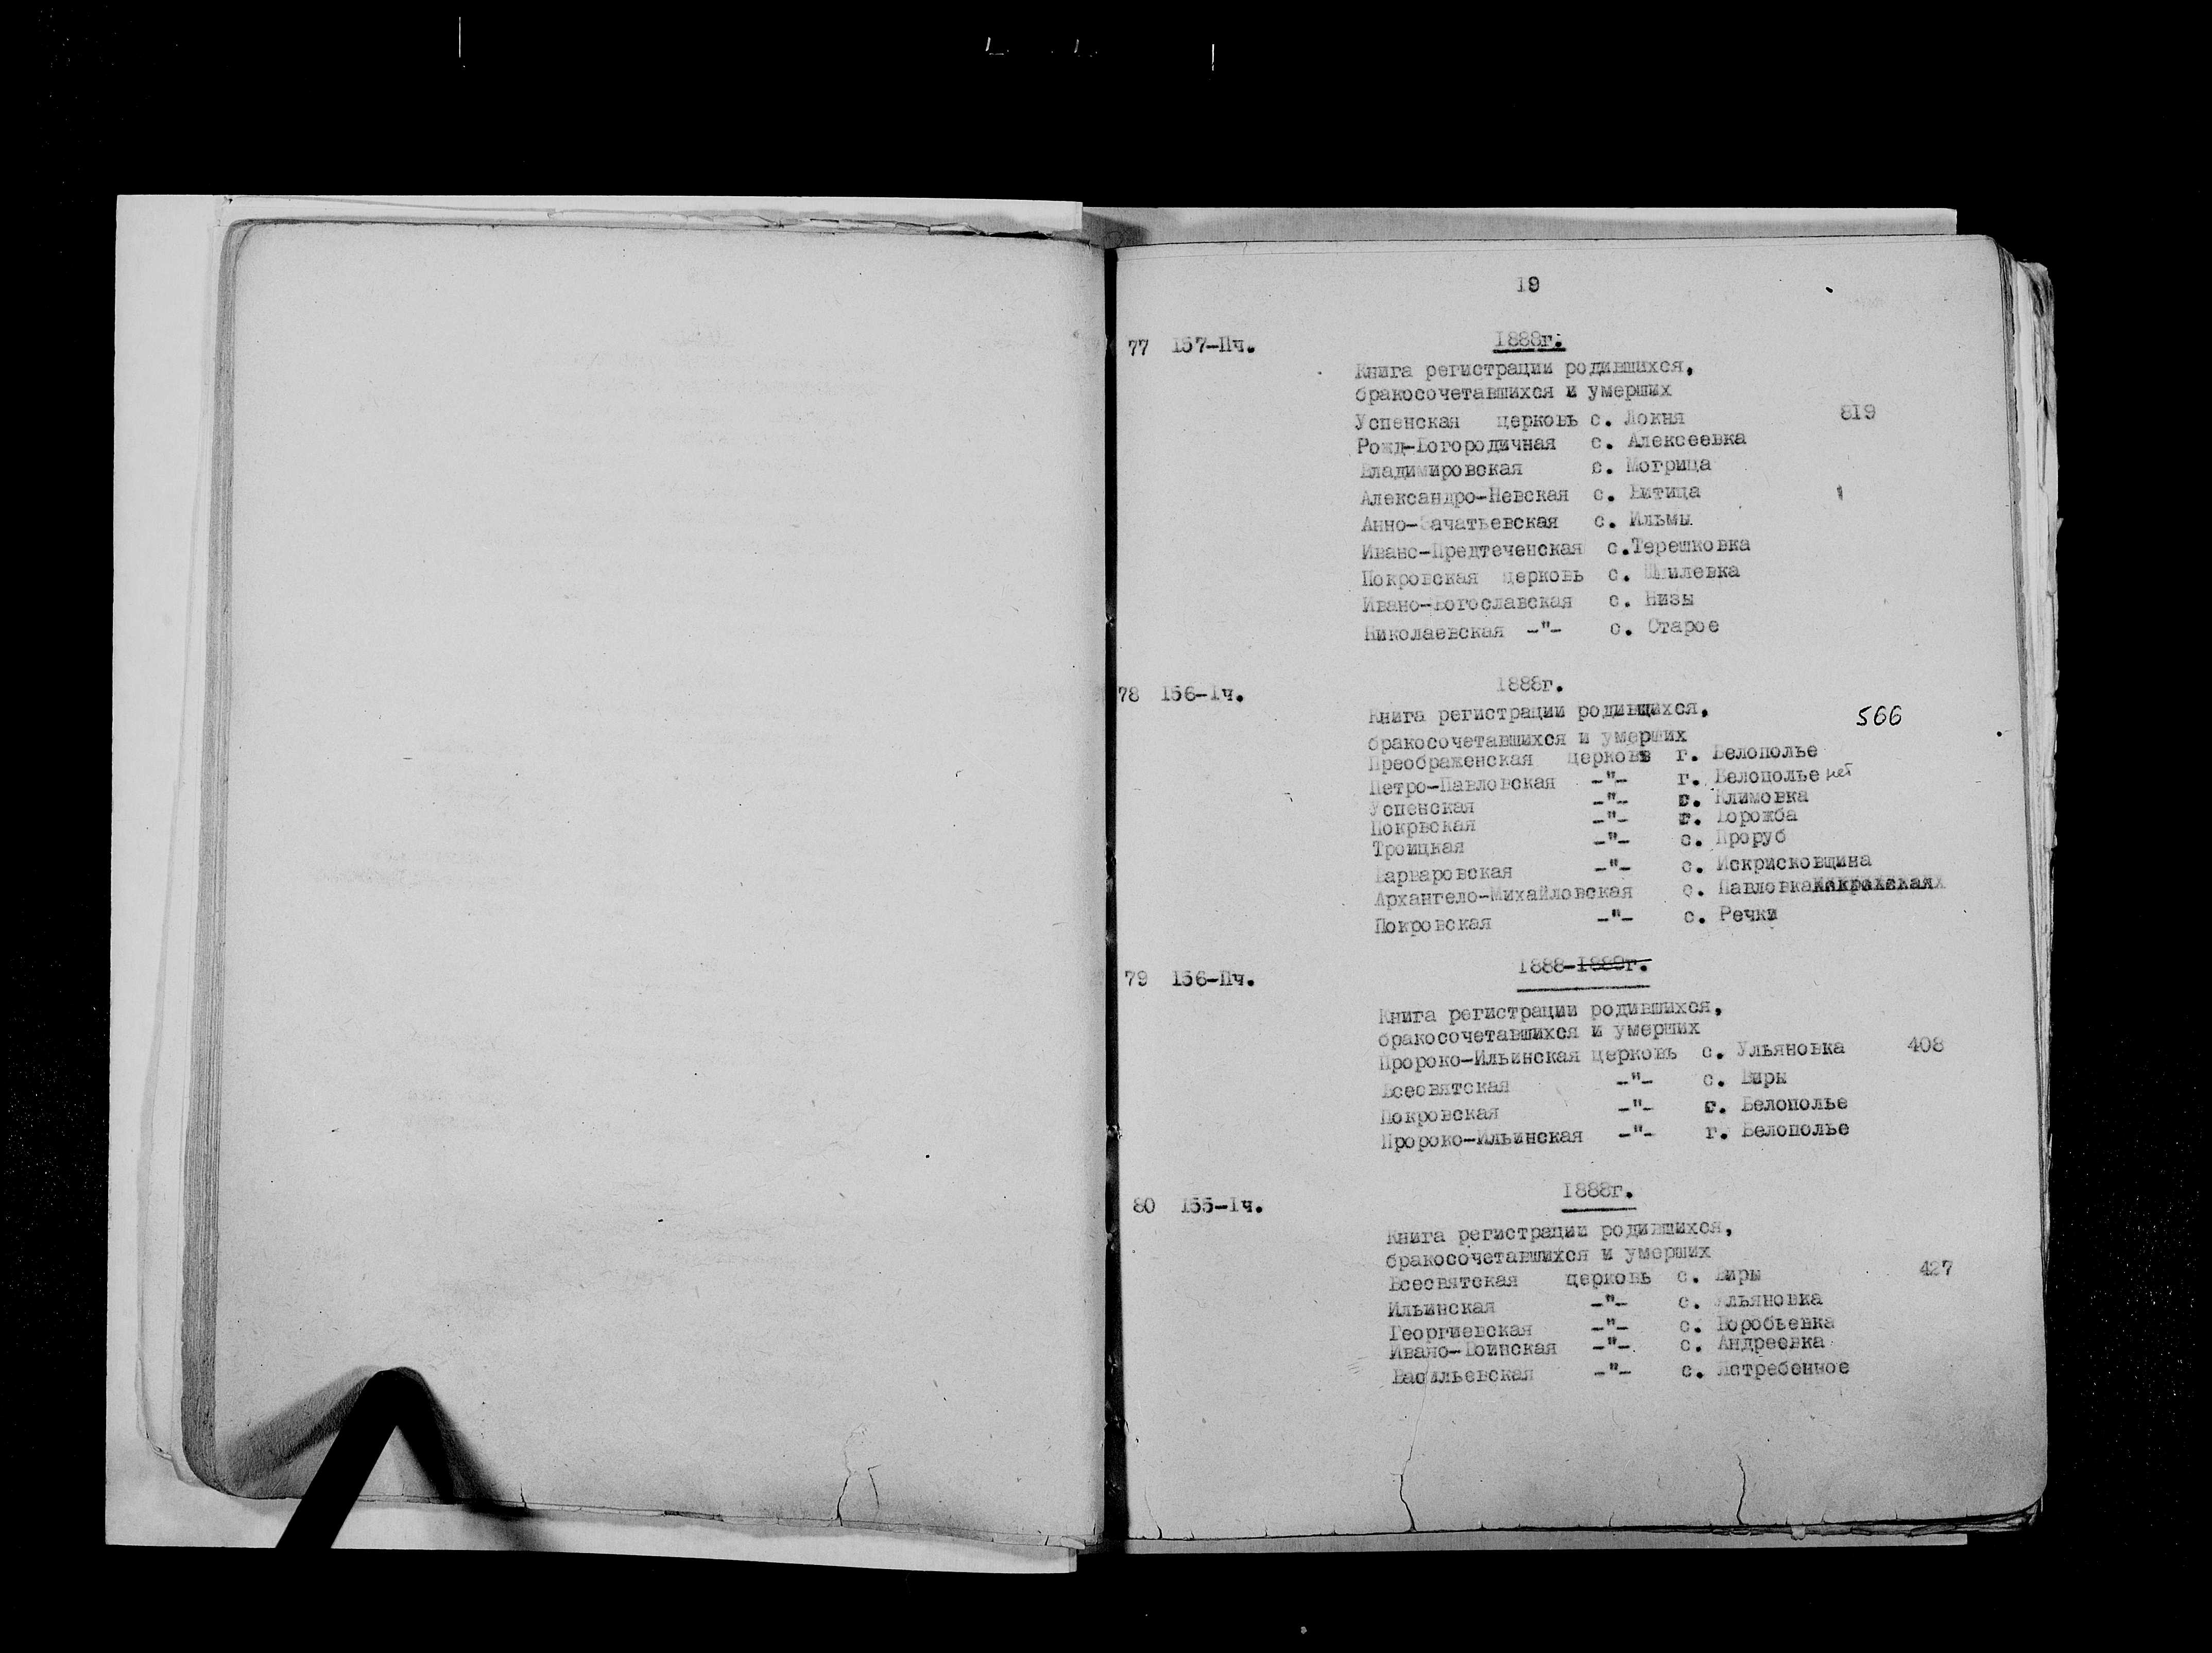 19
77 157-IIч. 1888г.
Книга регистрации родившихся,
бракосочетавшихся и умерших
Успенская церковь с. Локня 819
Рожд-Богородичная с. Алексеевка
Владимировская с. Могрица
Александро-Невская с. Битица
Анно-Зачатьевская с. Ильмы
Ивано-Предтеченская с.Терешковка
Покровская церковь с. Шпилевка
Ивано-Богославская с. Низы
Николаевская -"- с. Старое
78 156-Iч. 1888г.
Книга регистрации родивщихся, 566
бракосочетавшихся и умерших
Преображенская церковь г. Белополье
Петро-Павловская -"- г. Белополье нет
Успенская -"- с. Климовка
Покрвская -"- г. Ворожба
Троицкая -"- с. Проруб
Варваровская -"- с. Искрисковщина
Архангело-Михайловская с. Павловка
Покровская -"- с. Речки
79 156-IIч. 1888-1889г.
Книга регистрации родившихся,
бракосочетавшихся и умерших
Пророко-Ильинская церковь с. Ульяновка 408
Всесвятская -"- с. Виры
Покровская -"- г. Белополье
Пророко-Ильинская -"- г. Белополье
80 155-Iч. 1888г.
Книга регистрации родившихся,
бракосочетавшихся и умерших
Всесвятская церковь с. Виры 427
Ильинская -"- с. Ульяновка
Георгиевская -"- с. Воробьевка
Ивано-Воинская -"- с. Андреевка
Васильевская -"- с. Ястребенное